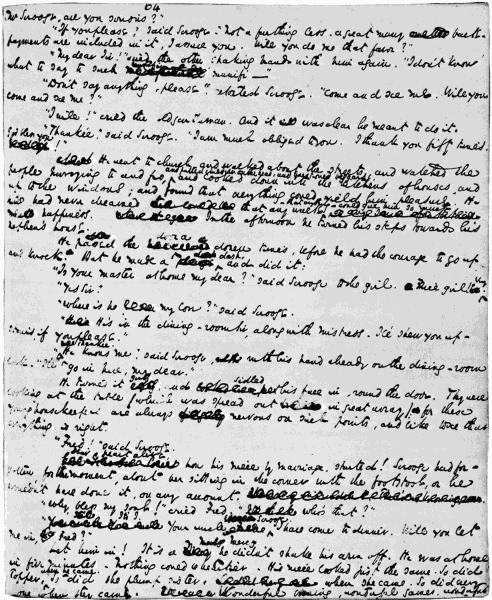 64
Mr Scrooge, are you serious?"
"If you please," said Scrooge. "Not a farthing less. A great many back-
payments are included in it, I assure you. Will you do me that favor?"
"My dear Sir," said the other, shaking hands with him again. "I don't know
what to say to such munifi—"
"Don't say anything, please," retorted Scrooge. "Come and see me. Will you
come and see me?"
"I will!" cried the old gentleman. And it was clear he meant to do it.
"Thankee," said Scrooge. "I am much obliged to you. I thank you fifty times.
Bless you!"
He went to church, and walked about the streets, and watched the
people hurrying to and fro, and looked down into the kitchens of houses, and
up to the windows; and found that everything could yield him pleasure. He
had never dreamed that any walk could give him so much
happiness. In the afternoon he turned his steps towards his
nephew's house.
He passed the door a dozen times, before he had the courage to go up
and knock. But he made a dash, and did it:
"Is your master at home my dear?" said Scrooge to the girl. Nice girl! Very.
"Yes Sir."
"Where is he my love?" said Scrooge.
"He's in the dining-room Sir, along with mistress. I'll show you up-
stairs if you please."
"Thankee. He knows me," said Scrooge, with his hand already on the dining-room
lock. "I'll go in here, my dear."
He turned it gently, and sidled his face in, round the door. They were
looking at the table (which was spread out in great array); for these
young housekeepers are always nervous on such points, and like to see that
everything is right.
"Fred!" said Scrooge.
Dear heart alive, how his niece by marriage started! Scrooge had for-
gotten for the moment, about her sitting in the corner with the footstool, or he
wouldn't have done it, on any account.
"Why bless my soul!" cried Fred, "who's that?"
"It's I. Your uncle Scrooge. I have come to dinner. Will you let
me in, Fred?"
Let him in! It is a mercy he didn't shake his arm off. He was at home
in five minutes. Nothing could be heartier. His niece looked just the same. So did
Topper, when he came. So did the plump sister, when she came. So did every
one when they came. Wonderful party, wonderful games, wonderful